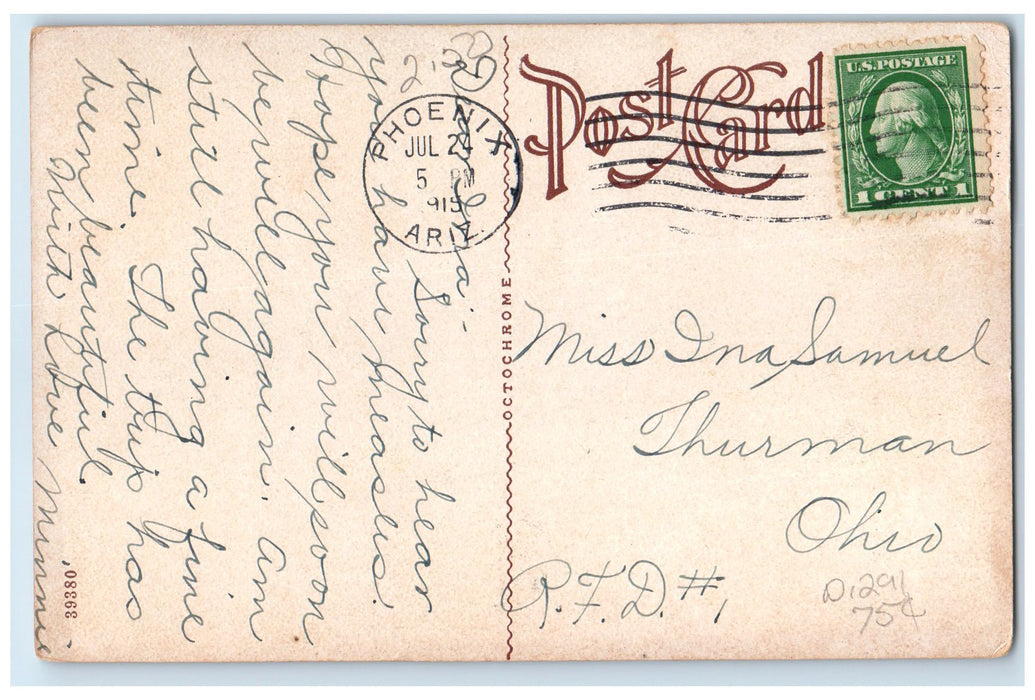 Post Card
U.S. POSTAGE
1 CENT 1
PHOENIX
JUL 24
5 PM
1915
ARIZ.
Dear Ina:-
Sorry to hear
you have measles.
Hope you will soon
be well again. Am
still having a fine
time. The trip has
been beautiful.
With Love Minnie
OCTOCHROME
39380
Miss Ina Samuel
Thurman
Ohio
R.F.D. #1
D1291
75¢